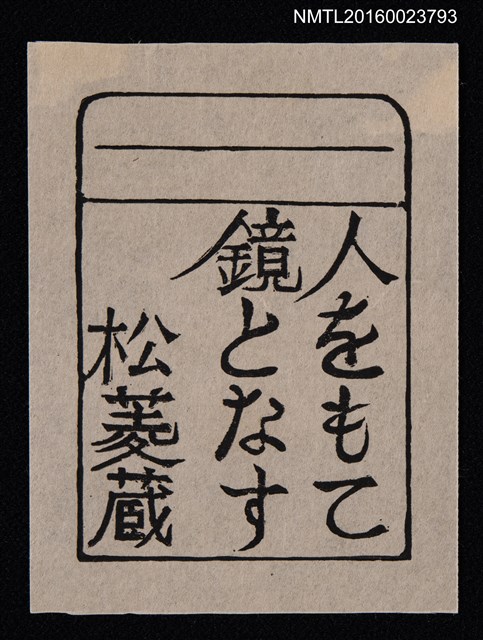 NMTL20160023793
人をもて
鏡となす
松菱蔵